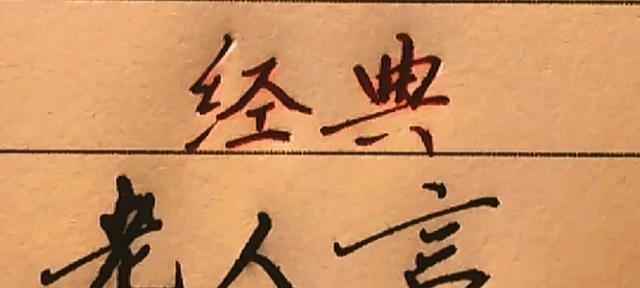 经典
老人言